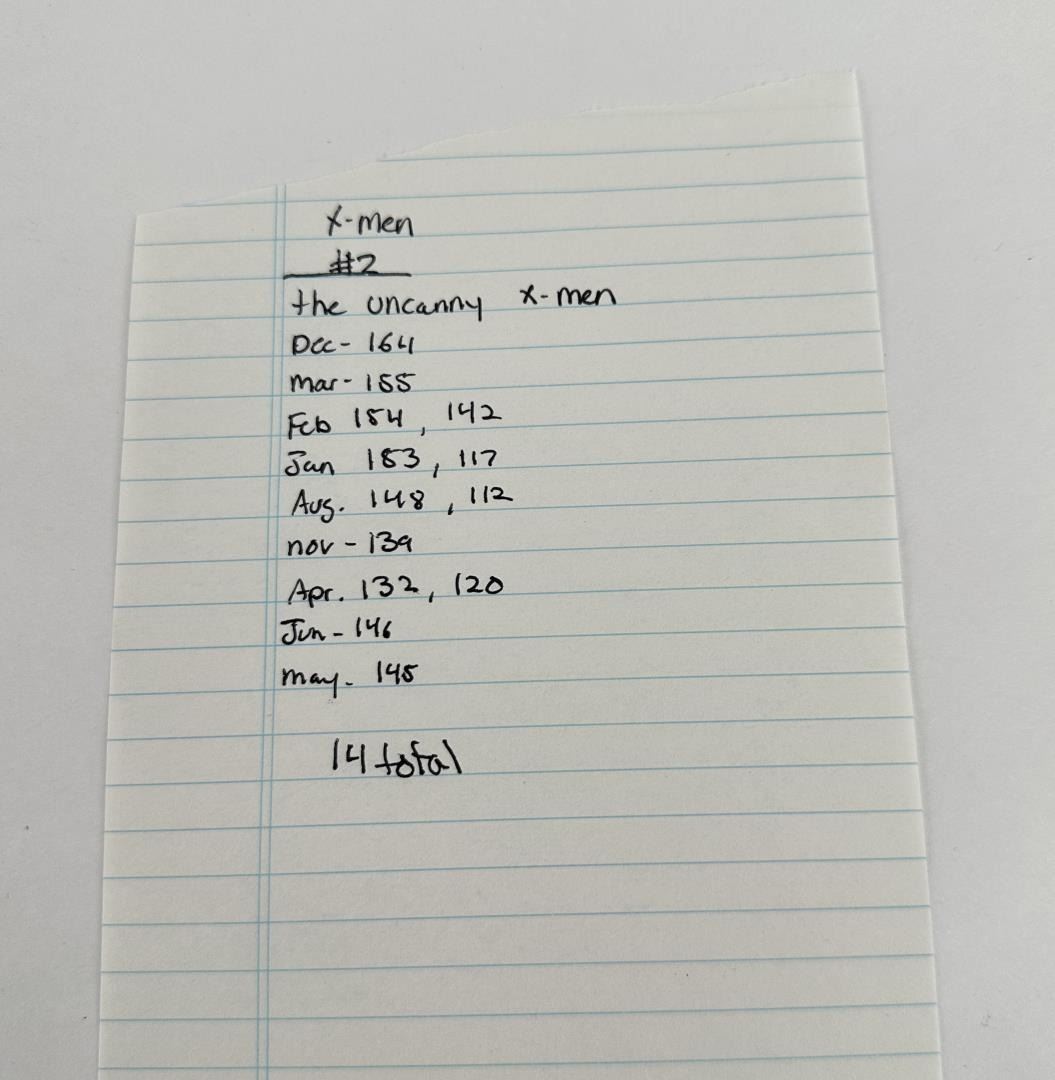 X-men
#2
the uncanny X-men
Dec- 164
Mar- 155
Feb 154, 142
Jan 153, 117
Aug. 148, 112
nov - 139
Apr. 132, 120
Jun - 146
may- 145
14 total